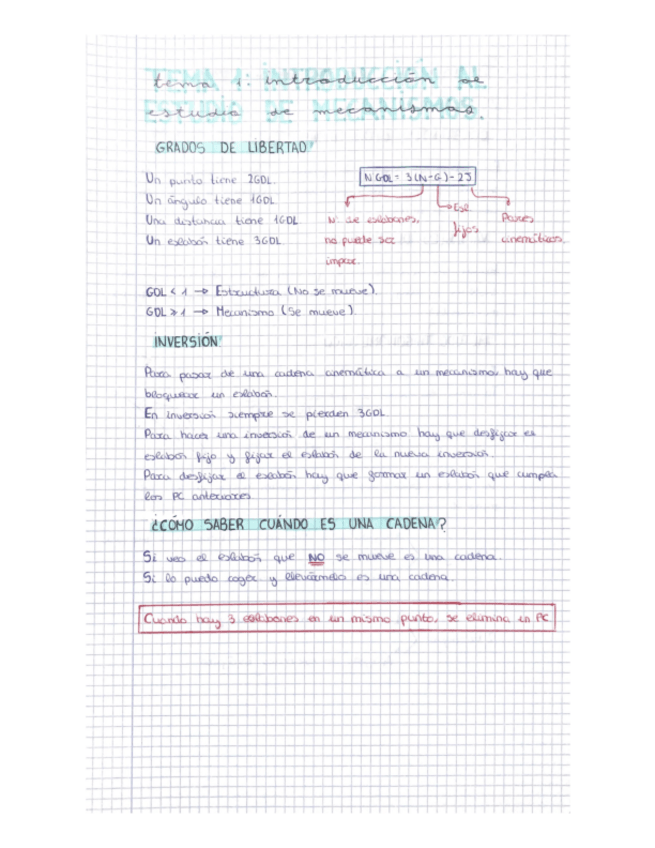 tema 1: introducción al
estudio de mecanismos.
GRADOS DE LIBERTAD
Un punto tiene 2GDL.
Un ángulo tiene 1GDL
Una distancia tiene 1GDL
Un eslabón tiene 3GDL
N GDL = 3(N-G)-2J
Nº de eslabones,
no puede ser
impar.
Esl
fijos
Pares
cinemáticos.
GDL < 1 → Estructura (No se mueve).
GDL ≥ 1 → Mecanismo (Se mueve).
INVERSIÓN
Para pasar de una cadena cinemática a un mecanismo, hay que
bloquear un eslabón.
En inversión siempre se pierden 3GDL
Para hacer una inversión de un mecanismo hay que desfijar el
eslabón fijo y fijar el eslabón de la nueva inversión.
Para desfijar el eslabón hay que formar un eslabón que cumpla
los PC anteriores
¿CÓMO SABER CUÁNDO ES UNA CADENA?
Si veo el eslabón que NO se mueve es una cadena.
Si lo puedo coger y llevármelo es una cadena.
Cuando hay 3 eslabones en un mismo punto, se elimina un PC